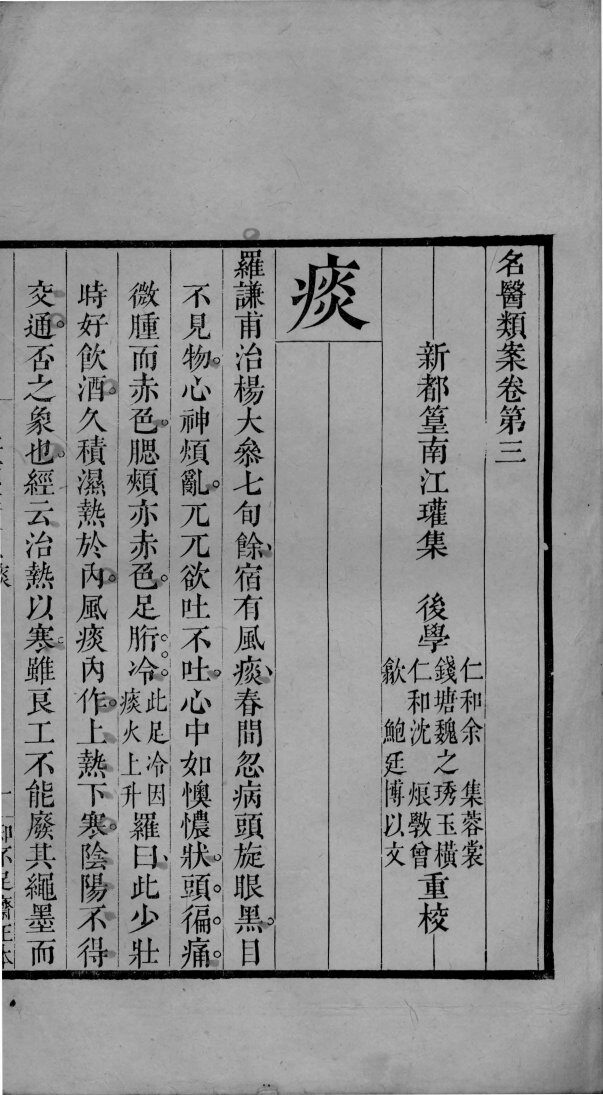 名醫類案卷第三
新都篁南江瓘集　後學
仁和余　集蓉裳
錢塘魏之琇玉橫
仁和沈　烺敦曾
歙　鮑廷博以文
重校
痰
羅謙甫治楊大叅七旬餘、宿有風痰、春間忽病頭旋眼黑。目
不見物。心神煩亂。兀兀欲吐不吐。心中如懊憹狀。頭徧痛。
微腫而赤色。腮頰亦赤色。足胻冷。此足冷因痰火上升羅曰、此少壯
時好飲酒。久積濕熱於內。風痰內作。上熱下寒。陰陽不得
交通。否之象也。經云治熱以寒。雖良工不能廢其繩墨而
痰
一
知不足齋正本